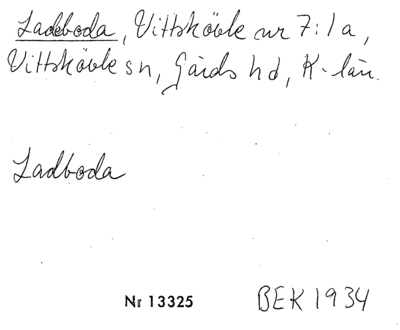 Ladeboda, Vittskövle nr 7:1a,
Vittskövle sn, Gärds hd, K-län.
Ladboda
Nr 13325 BEK 1934